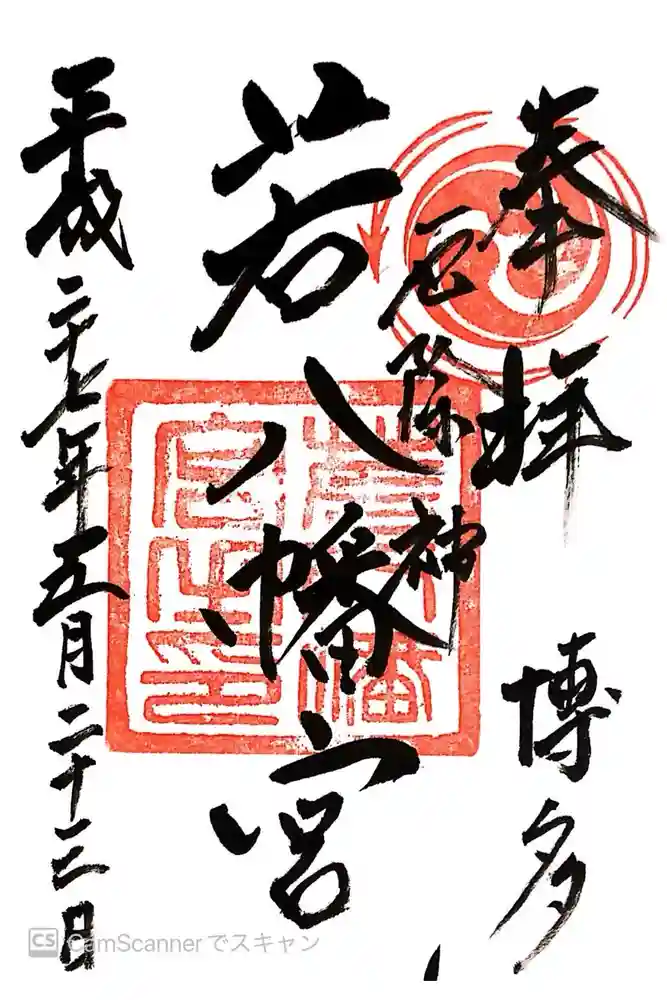 奉拝 博多
厄除神
若八幡宮
平成二十七年五月二十三日
若八幡宮之印
CS CamScannerでスキャン